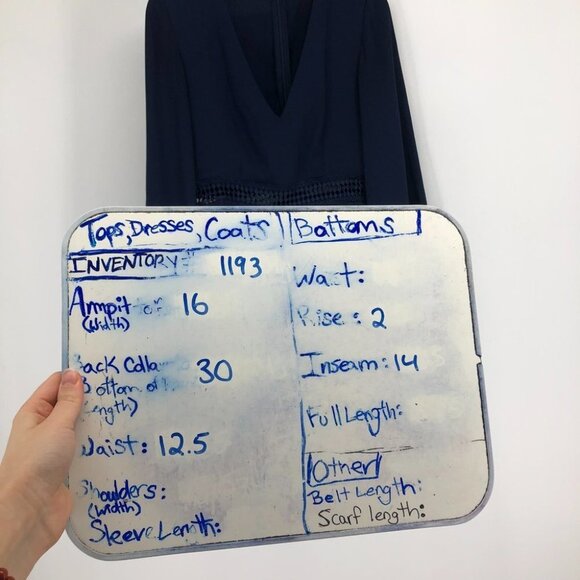 Tops, Dresses, Coats
INVENTORY# 1193
Armpit 16
(width)
Back Colla 30
Bottom of
Length)
Waist: 12.5
Shoulders:
(width)
Sleeve Length:
Bottoms
Wa t:
Rise: 2
Inseam: 14
Full Length:
Other
Belt Length:
Scarf length: